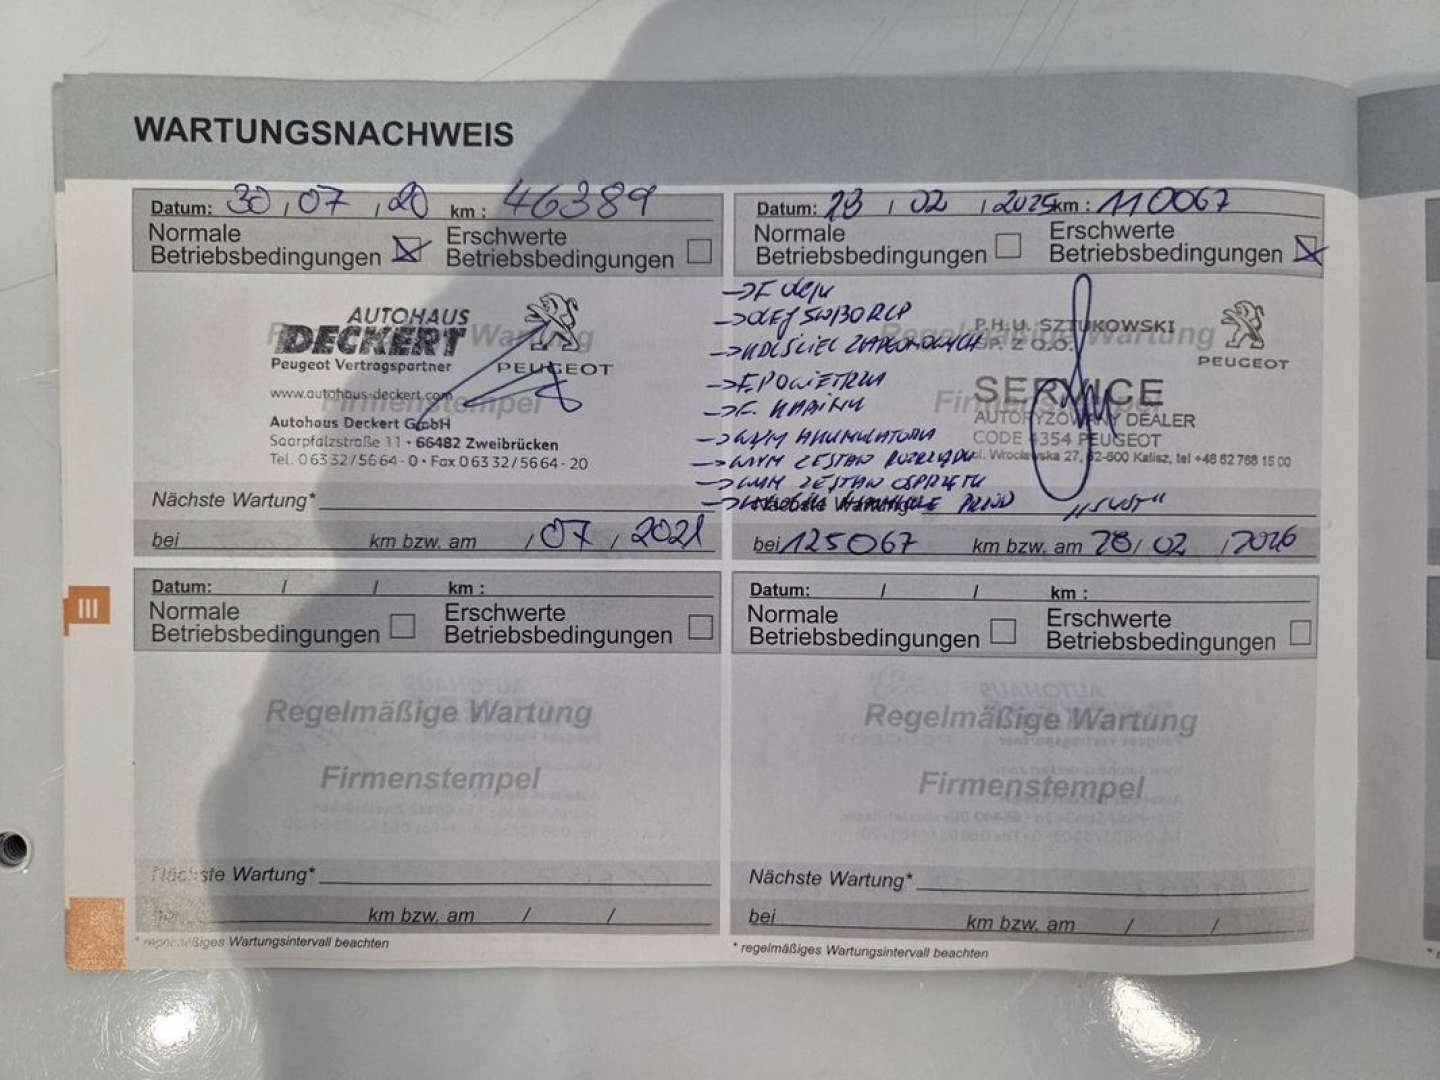 WARTUNGSNACHWEIS
Datum: 30 / 07 / 20 km : 46389
Normale Betriebsbedingungen
Erschwerte Betriebsbedingungen
Regelmäßige Wartung
Firmenstempel
AUTOHAUS
DECKERT
Peugeot Vertragspartner
PEUGEOT
www.autohaus-deckert.com
Autohaus Deckert GmbH
Saarpfalzstraße 11 • 66482 Zweibrücken
Tel. 0 63 32/56 64 - 0 • Fax 0 63 32/56 64 - 20
Nächste Wartung*
bei km bzw. am / 07 / 2021
Datum: / 02 / 2025 km : 110067
Normale Betriebsbedingungen
Erschwerte Betriebsbedingungen
Regelmäßige Wartung
Firmenstempel
→ F oleju
→ OLEJ 5W30 RCP
→ F. POWIETRZA
→ F. KABINY
→ WYM AKUMULATORA
→ WYM ZESTAW ROZRZĄDU
→ WYM ZESTAW OSPRZĘTU
P.H.U. SZTUKOWSKI
SP. Z O.O.
PEUGEOT
SERVICE
AUTORYZOWANY DEALER
CODE 4354 PEUGEOT
ul. Wrocławska 27, 62-800 Kalisz, tel +48 62 768 15 00
Nächste Wartung*
bei 125067 km bzw. am 28 / 02 / 2026
III
Datum: / / km :
Normale Betriebsbedingungen
Erschwerte Betriebsbedingungen
Regelmäßige Wartung
Firmenstempel
Nächste Wartung*
km bzw. am / /
* regelmäßiges Wartungsintervall beachten
Datum: / / km :
Normale Betriebsbedingungen
Erschwerte Betriebsbedingungen
Regelmäßige Wartung
Firmenstempel
Nächste Wartung*
bei km bzw. am / /
* regelmäßiges Wartungsintervall beachten